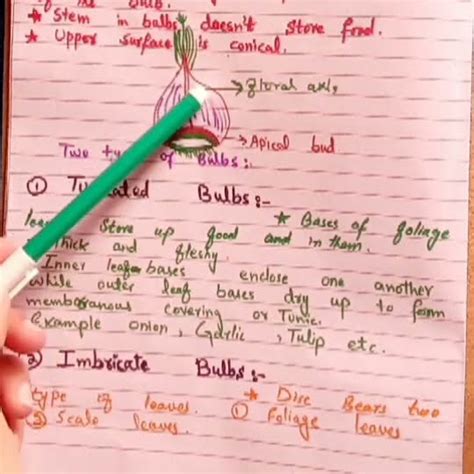 the Bulb.
* Stem in bulbs doesn't store food.
* Upper surface is conical.
→ floral axis
→ Apical bud
Two of Bulbs:-
① Bulbs:-
* Bases of foliage
store up food and in them.
thick and fleshy.
Inner leafbases enclose one another
while outer leaf bases dry up to form
membranous covering or Tunic.
Example onion, Garlic, Tulip etc.
② Imbricate Bulbs:-
* Disc Bears two
type of leaves. ① Foliage leaves
② Scale leaves.